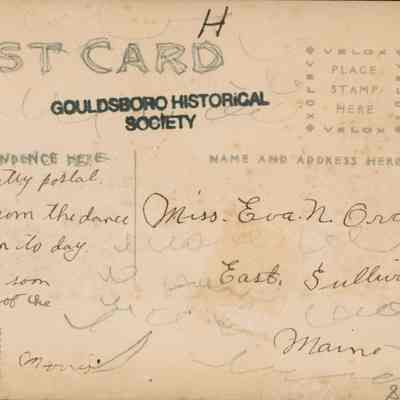 H
ST CARD
GOULDSBORO HISTORICAL
SOCIETY
VELOX
PLACE
STAMP
HERE
VELOX
NDENCE HERE
NAME AND ADDRESS HERE
postal.
from the dance
to day.
soon
of the
Morris
Miss. Eva. N. Orc
East. Sulliv
Maine